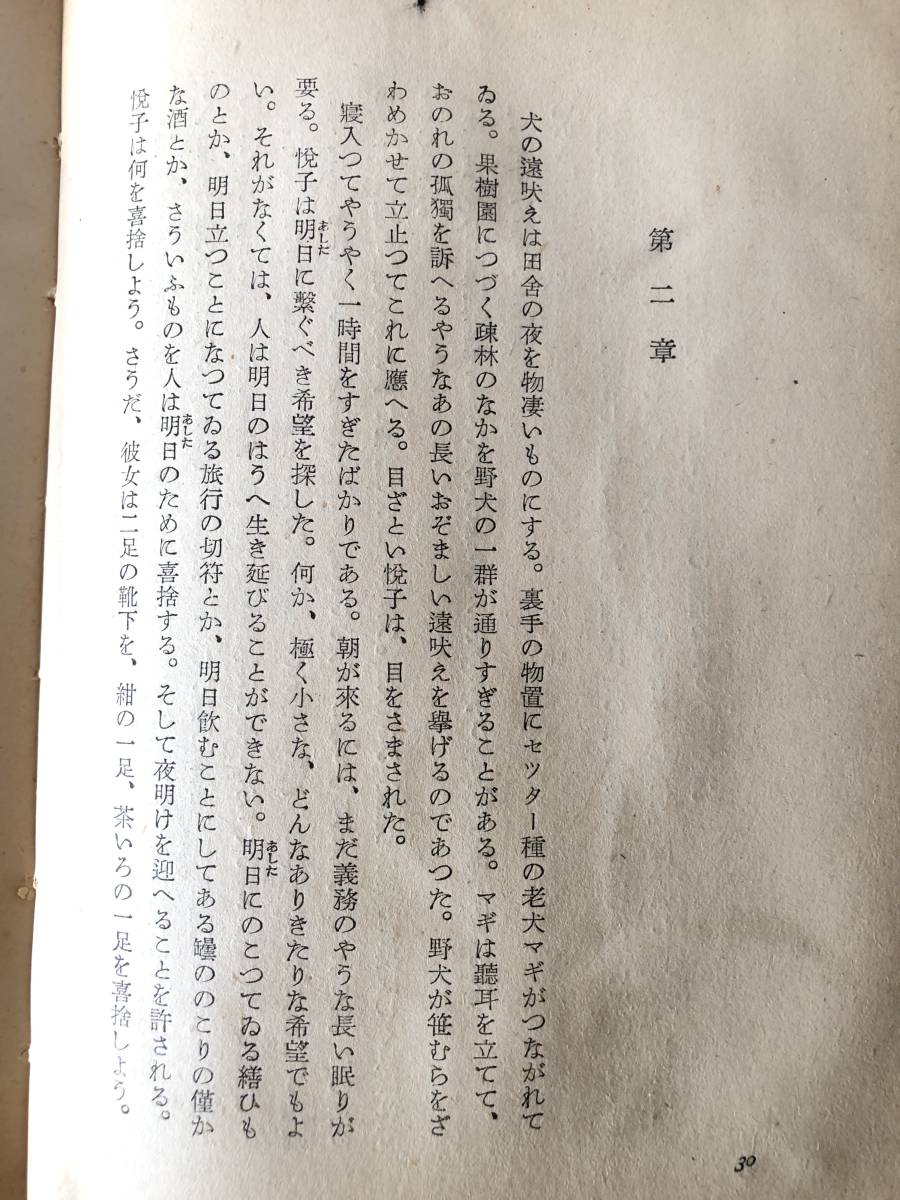 第二章
犬の遠吠えは田舎の夜を物凄いものにする。裏手の物置にセツター種の老犬マギがつながれて
ゐる。果樹園につづく疎林のなかを野犬の一群が通りすぎることがある。マギは聽耳を立てて、
おのれの孤獨を訴へるやうなあの長いおぞましい遠吠えを擧げるのであつた。野犬が笹むらをざ
わめかせて立止つてこれに應へる。目ざとい悅子は、目をさまされた。
寢入つてやうやく一時間をすぎたばかりである。朝が來るには、まだ義務のやうな長い眠りが
要る。悅子は明日に繫ぐべき希望を探した。何か、極く小さな、どんなありきたりな希望でもよ
あした
い。それがなくては、人は明日のはうへ生き延びることができない。明日にのこつてゐる繕ひも
あした
のとか、明日立つことになつてゐる旅行の切符とか、明日飲むことにしてある罎ののこりの僅か
な酒とか、さういふものを人は明日のために喜捨する。そして夜明けを迎へることを許される。
あした
悅子は何を喜捨しよう。さうだ、彼女は二足の靴下を、紺の一足、茶いろの一足を喜捨しよう。
30